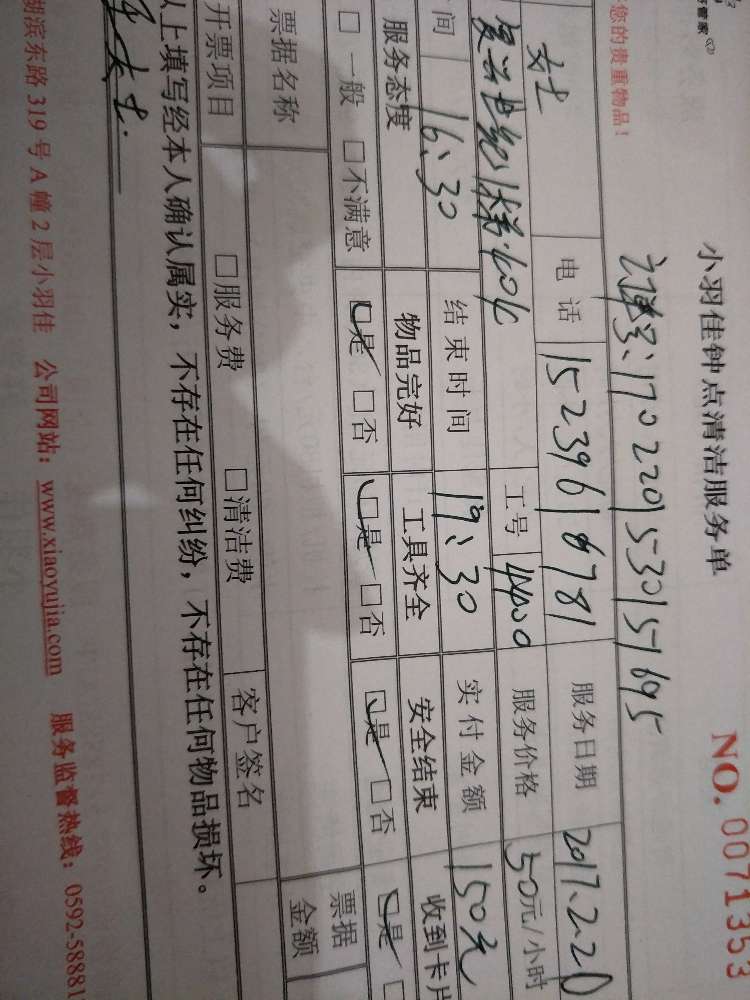 小羽佳钟点清洁服务单
NO.0071353
您的贵重物品!
1702201530151695
女士 电话 15239616781 服务日期 2017.2.20
工号 服务价格 50元/小时
间 16:30 结束时间 19:30 实付金额 150元
服务态度 物品完好 工具齐全 安全结束 收到卡片
□一般 □不满意 □是 □否 □是 □否 □是 □否 □是
票据名称 票据金额
开票项目 □服务费 □清洁费 客户签名
以上填写经本人确认属实,不存在任何纠纷,不存在任何物品损坏。
湖滨东路319号A幢2层小羽佳 公司网站:www.xiaoyujia.com 服务监督热线:0592-58881